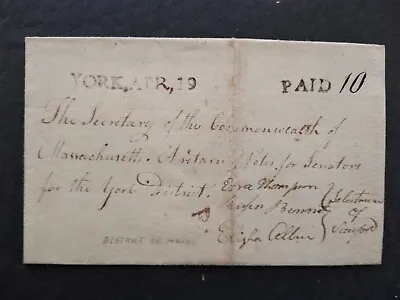 YORK, APR, 19
PAID 10
The Secretary of the Commonwealth of
Massachusetts. Return Votes for Senators
for the York District.
Ezra Thompson
Bennet
Elisha Allen
Selectmen
of
Sanford
DISTRICT OF MAINE